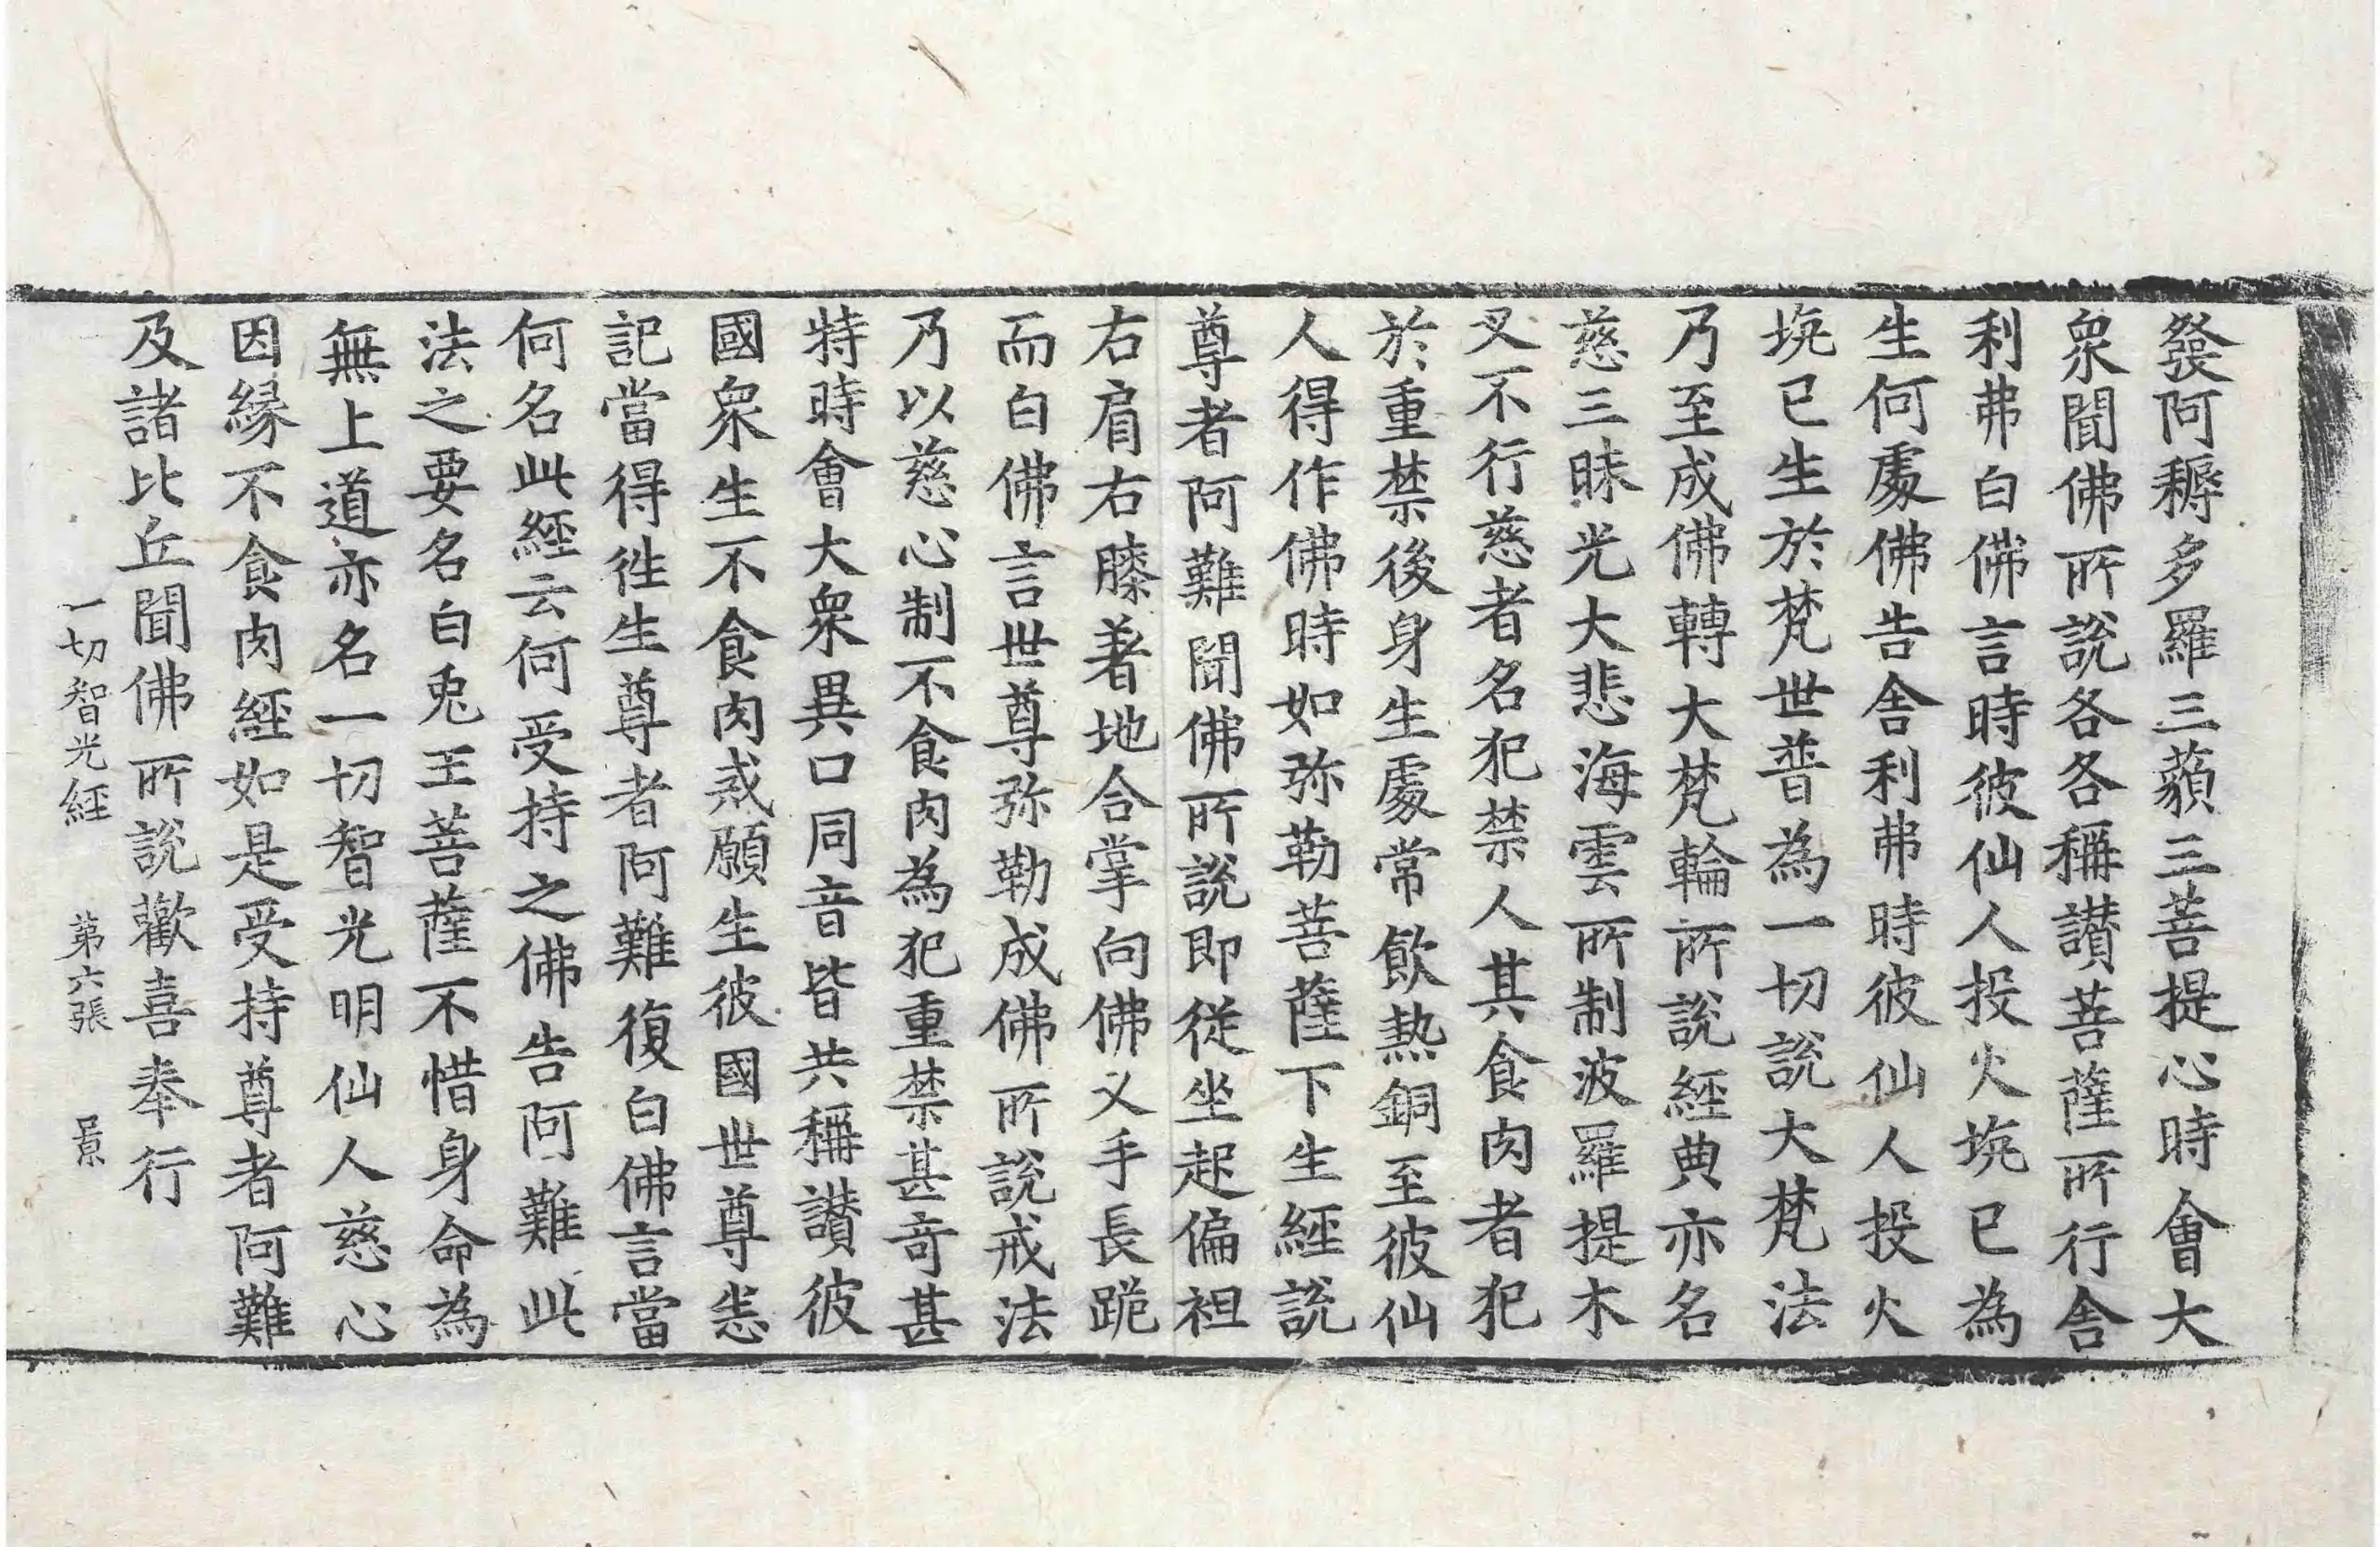 發阿耨多羅三藐三菩提心時會大
衆聞佛所說各各稱讃菩薩所行舎
利弗白佛言時彼仙人投火坑已為
生何處佛告舎利弗時彼仙人投火
坑已生於梵世普為一切說大梵法
乃至成佛轉大梵輪所說經典亦名
慈三昧光大悲海雲所制波羅提木
叉不行慈者名犯禁人其食肉者犯
於重禁後身生處常飲熱銅至彼仙
人得作佛時如弥勒菩薩下生經說
尊者阿難聞佛所說即從坐起偏袒
右肩右膝著地合掌向佛叉手長跪
而白佛言世尊弥勒成佛所說戒法
乃以慈心制不食肉為犯重禁甚奇甚
特時會大衆異口同音皆共稱讃彼
國衆生不食肉戒願生彼國世尊悉
記當得徃生尊者阿難復白佛言當
何名此經云何受持之佛告阿難此
法之要名白兎王菩薩不惜身命為
無上道亦名一切智光明仙人慈心
因縁不食肉經如是受持尊者阿難
及諸比丘聞佛所說歡喜奉行
一切智光經　第六張　景